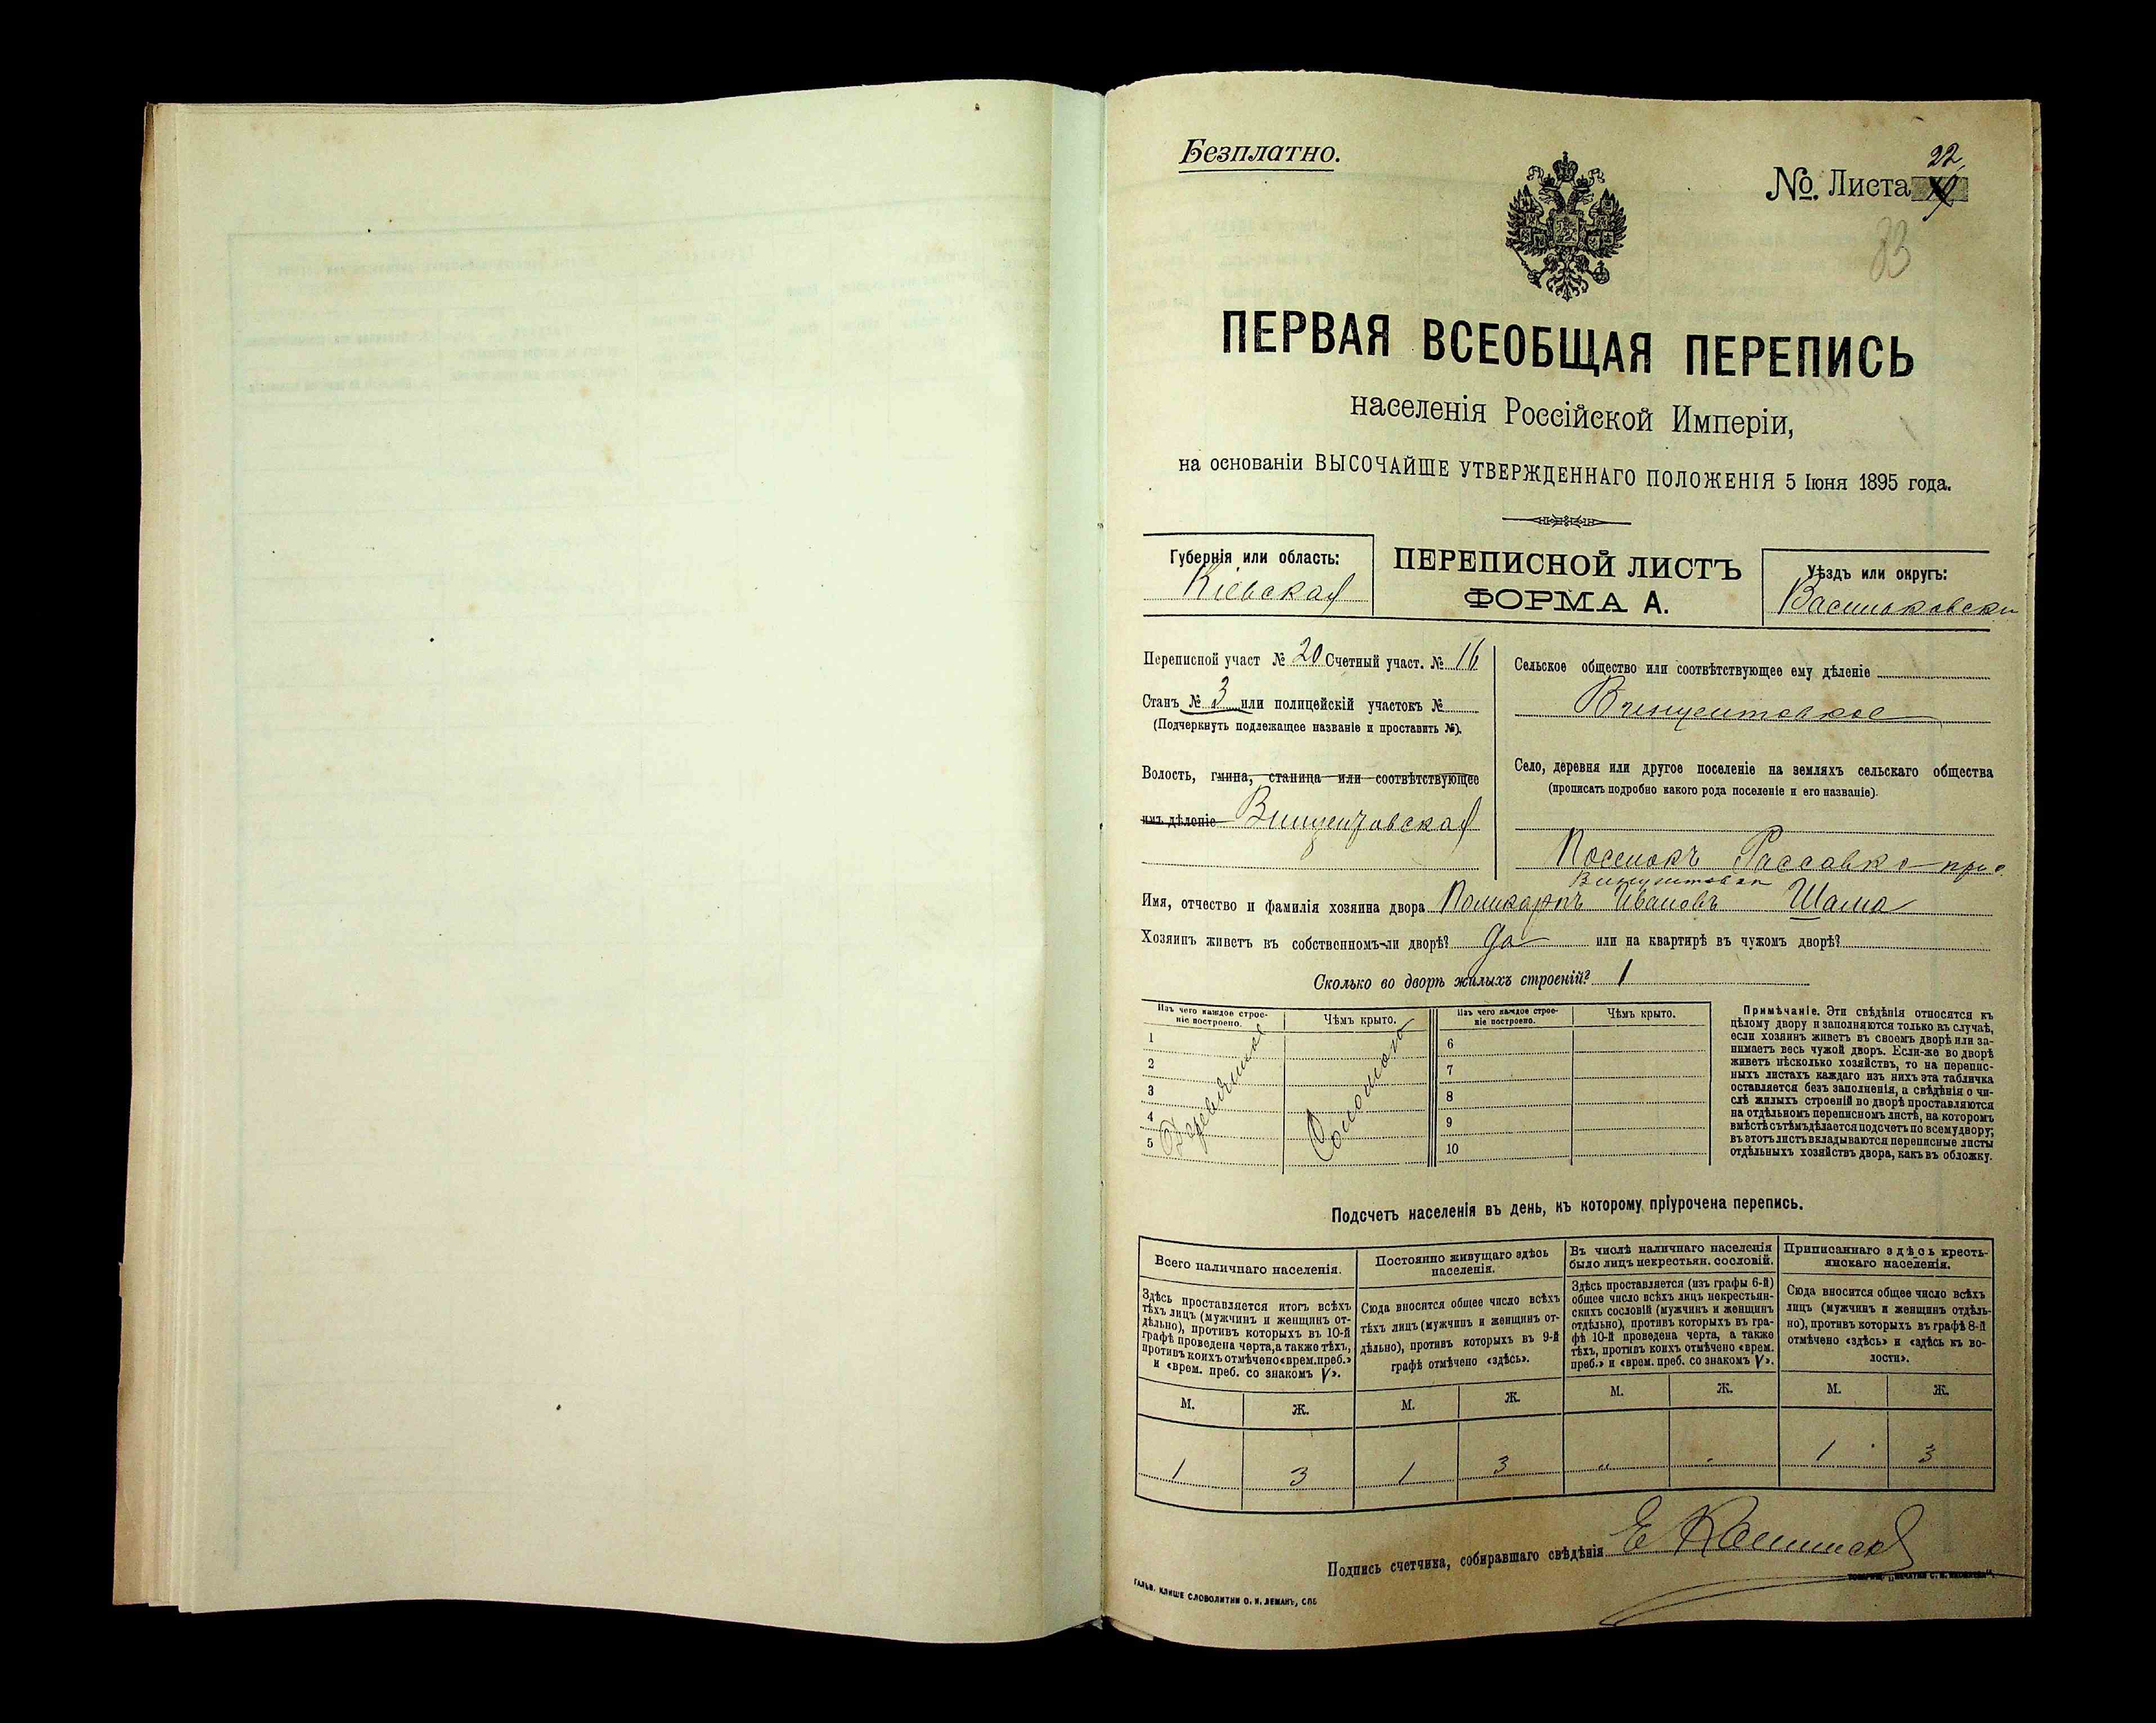 Безплатно.
22
№ Листа
33
ПЕРВАЯ ВСЕОБЩАЯ ПЕРЕПИСЬ
населенія Россійской Имперіи,
на основаніи ВЫСОЧАЙШЕ УТВЕРЖДЕННАГО ПОЛОЖЕНІЯ 5 Іюня 1895 года.
Губернія или область:
Кіевская
ПЕРЕПИСНОЙ ЛИСТЪ
ФОРМА А.
Уѣздъ или округъ:
Васильковски
Переписной участ № 20 Счетный участ. № 16
Станъ № 3 или полицейскій участокъ №
(Подчеркнуть подлежащее названіе и проставить №).
Волость, гмина, станица или соотвѣтствующее
имъ дѣленіе Винцентовская
Сельское общество или соотвѣтствующее ему дѣленіе
Винцентовское
Село, деревня или другое поселеніе на земляхъ сельскаго общества
(прописать подробно какого рода поселеніе и его названіе).
Поселокъ при
Имя, отчество и фамилія хозяина двора Поликарпъ Ивановъ Шама
Хозяинъ живетъ въ собственномъ-ли дворѣ? Да или на квартирѣ въ чужомъ дворѣ?
Сколько во дворѣ жилыхъ строеній? 1
Изъ чего каждое строе-
ніе построено.
Чѣмъ крыто.
Изъ чего каждое строе-
ніе построено.
Чѣмъ крыто.
1
2
3
4
5
Соломою
6
7
8
9
10
Примѣчаніе. Эти свѣдѣнія относятся къ
цѣлому двору и заполняются только въ случаѣ,
если хозяинъ живетъ въ своемъ дворѣ или за-
нимаетъ весь чужой дворъ. Если-же во дворѣ
живетъ нѣсколько хозяйствъ, то на перепис-
ныхъ листахъ каждаго изъ нихъ эта табличка
оставляется безъ заполненія, а свѣдѣнія о чи-
слѣ жилыхъ строеній во дворѣ проставляются
на отдѣльномъ переписномъ листѣ, на которомъ
вмѣстѣ съ тѣмъ дѣлается подсчетъ по всему двору;
въ этотъ листъ вкладываются переписные листы
отдѣльныхъ хозяйствъ двора, какъ въ обложку.
Подсчетъ населенія въ день, къ которому пріурочена перепись.
Всего наличнаго населенія.
Здѣсь проставляется итогъ всѣхъ
тѣхъ лицъ (мужчинъ и женщинъ от-
дѣльно), противъ которыхъ въ 10-й
графѣ проведена черта, а также тѣхъ,
противъ коихъ отмѣчено «врем. преб.»
и «врем. преб. со знакомъ V».
Постоянно живущаго здѣсь
населенія.
Сюда вносится общее число всѣхъ
тѣхъ лицъ (мужчинъ и женщинъ от-
дѣльно), противъ которыхъ въ 9-й
графѣ отмѣчено «здѣсь».
Въ числѣ наличнаго населенія
было лицъ некрестьян. сословій.
Здѣсь проставляется (изъ графы 6-й)
общее число всѣхъ лицъ некрестьян-
скихъ сословій (мужчинъ и женщинъ
отдѣльно), противъ которыхъ въ гра-
фѣ 10-й проведена черта, а также
тѣхъ, противъ коихъ отмѣчено «врем.
преб.» и «врем. преб. со знакомъ V».
Приписаннаго здѣсь кресть-
янскаго населенія.
Сюда вносится общее число всѣхъ
лицъ (мужчинъ и женщинъ отдѣль-
но), противъ которыхъ въ графѣ 8-й
отмѣчено «здѣсь» и «здѣсь въ во-
лости».
М. Ж. М. Ж. М. Ж. М. Ж.
1 3 1 3 „ „ 1 3
Подпись счетчика, собиравшаго свѣдѣнія Е
ГАЛЬВ. КЛИШЕ СЛОВОЛИТНИ О. И. ЛЕМАНЪ, СПБ